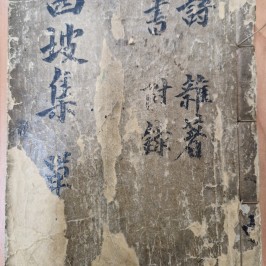 詩 雜著
書 附錄
西坡集